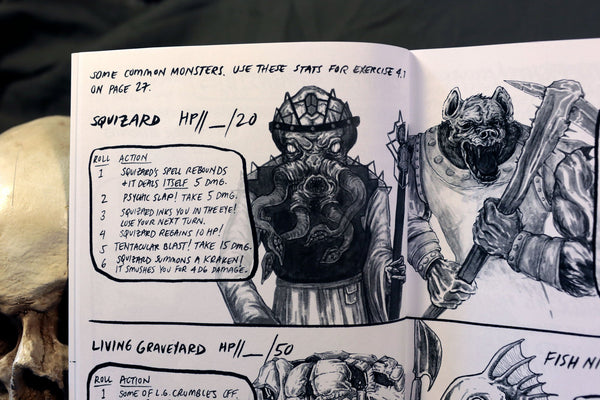 SOME COMMON MONSTERS. USE THESE STATS FOR EXERCISE 4.1
ON PAGE 27.
SQUIZARD HP//__/20
ROLL ACTION
1 SQUIZARD'S SPELL REBOUNDS
+ IT DEALS ITSELF 5 DMG.
2 PSYCHIC SLAP! TAKE 5 DMG.
3 SQUIZARD INKS YOU IN THE EYE!
LOSE YOUR NEXT TURN.
4 SQUIZARD REGAINS 10 HP!
5 TENTACULAR BLAST! TAKE 15 DMG.
6 SQUIZARD SUMMONS A KRAKEN!
IT SMUSHES YOU FOR 4D6 DAMAGE.
LIVING GRAVEYARD HP//__/50
ROLL ACTION
1 SOME OF L.G. CRUMBLES OFF.
FISH NI